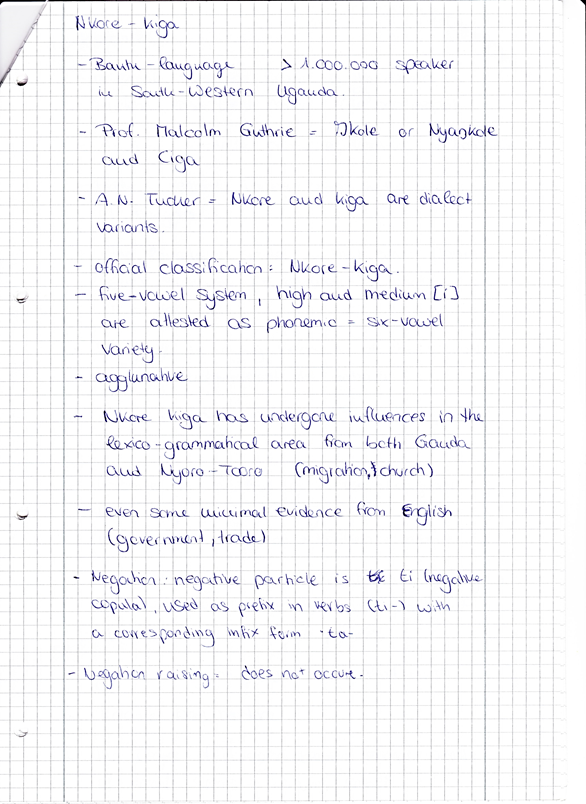 Nkore - Kiga
- Bantu - language > 1.000.000 speaker
in South-Western Uganda.
- Prof. Malcolm Guthrie = Nkole or Nyankole
and Ciga
- A.N. Tucker = Nkore and Kiga are dialect
variants.
- official classification: Nkore-Kiga.
- five-vowel system, high and medium [i]
are attested as phonemic = six-vowel
variety.
- agglunative
- Nkore Kiga has undergone influences in the
lexico-grammatical area from both Ganda
and Nyoro-Tooro (migration, & church)
- even some minimal evidence from English
(government, trade)
- Negation: negative particle is ti (negative
copula), used as prefix in verbs (ti-) with
a corresponding infix form -ta-
- Negation raising = does not occure.